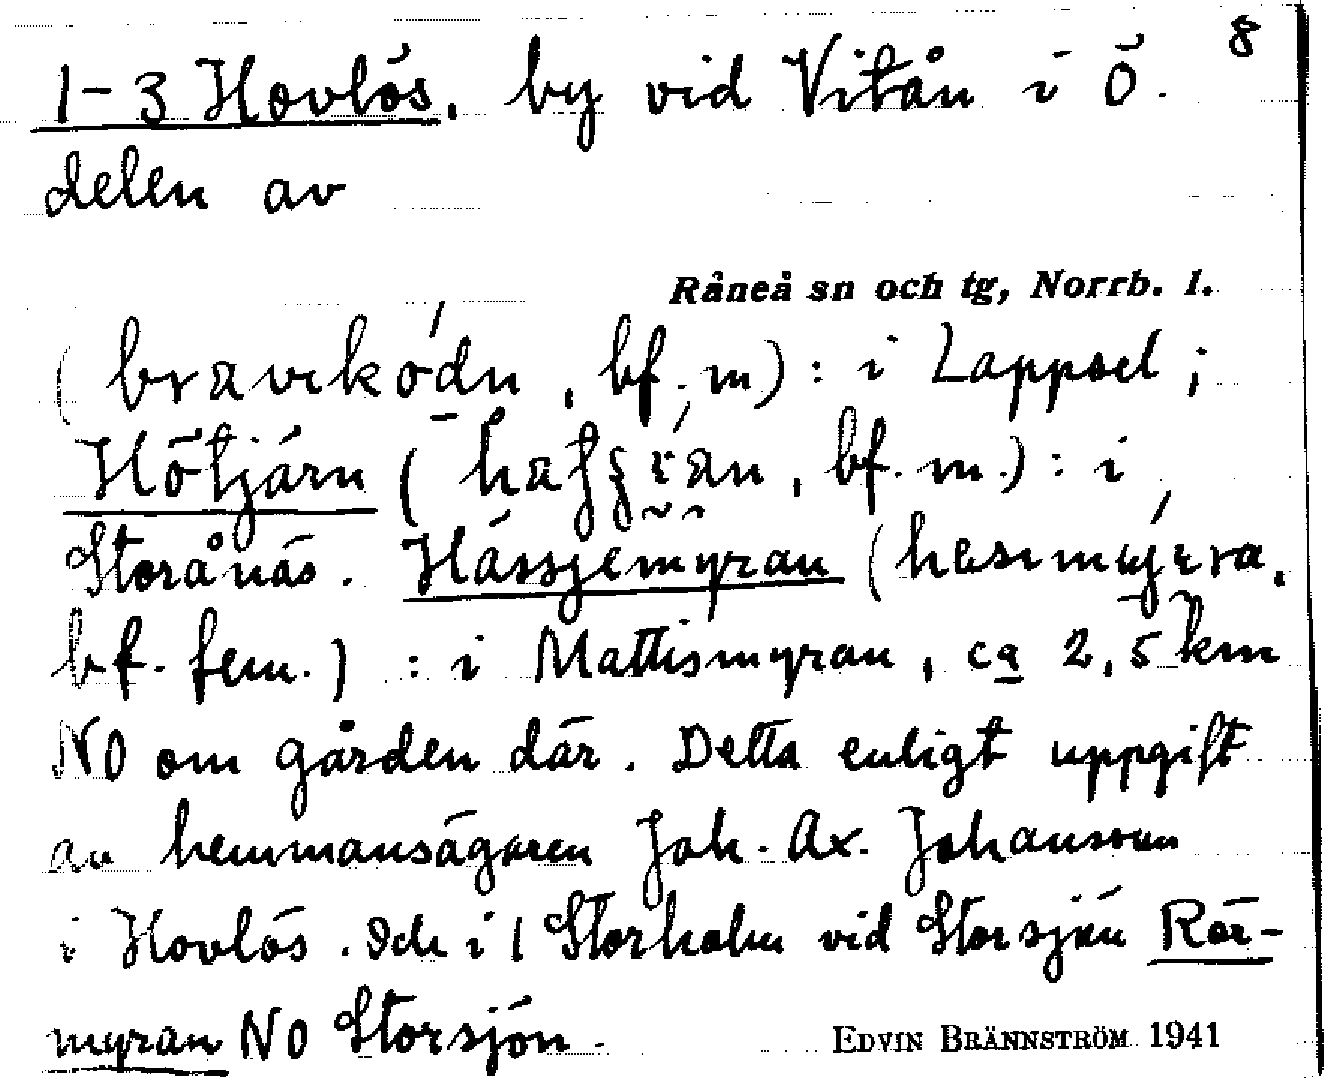 8
1-3 Hovlös, by vid Vitån i Ö.
delen av
Råneå sn och tg, Norrb. l.
bf. m) : i Lappsel ;
Hötjärn ( bf. m.) : i
Storånäs. Hässjemyran (
bf. fem.) : i Mattismyran, ca 2,5 km
NO om gården där. Detta enligt uppgift
av hemmansägaren Joh. Ax. Johansson
i Hovlös. Och i 1 Storholm vid Storsjön Rör-
myran NO Storsjön.
EDVIN BRÄNNSTRÖM 1941